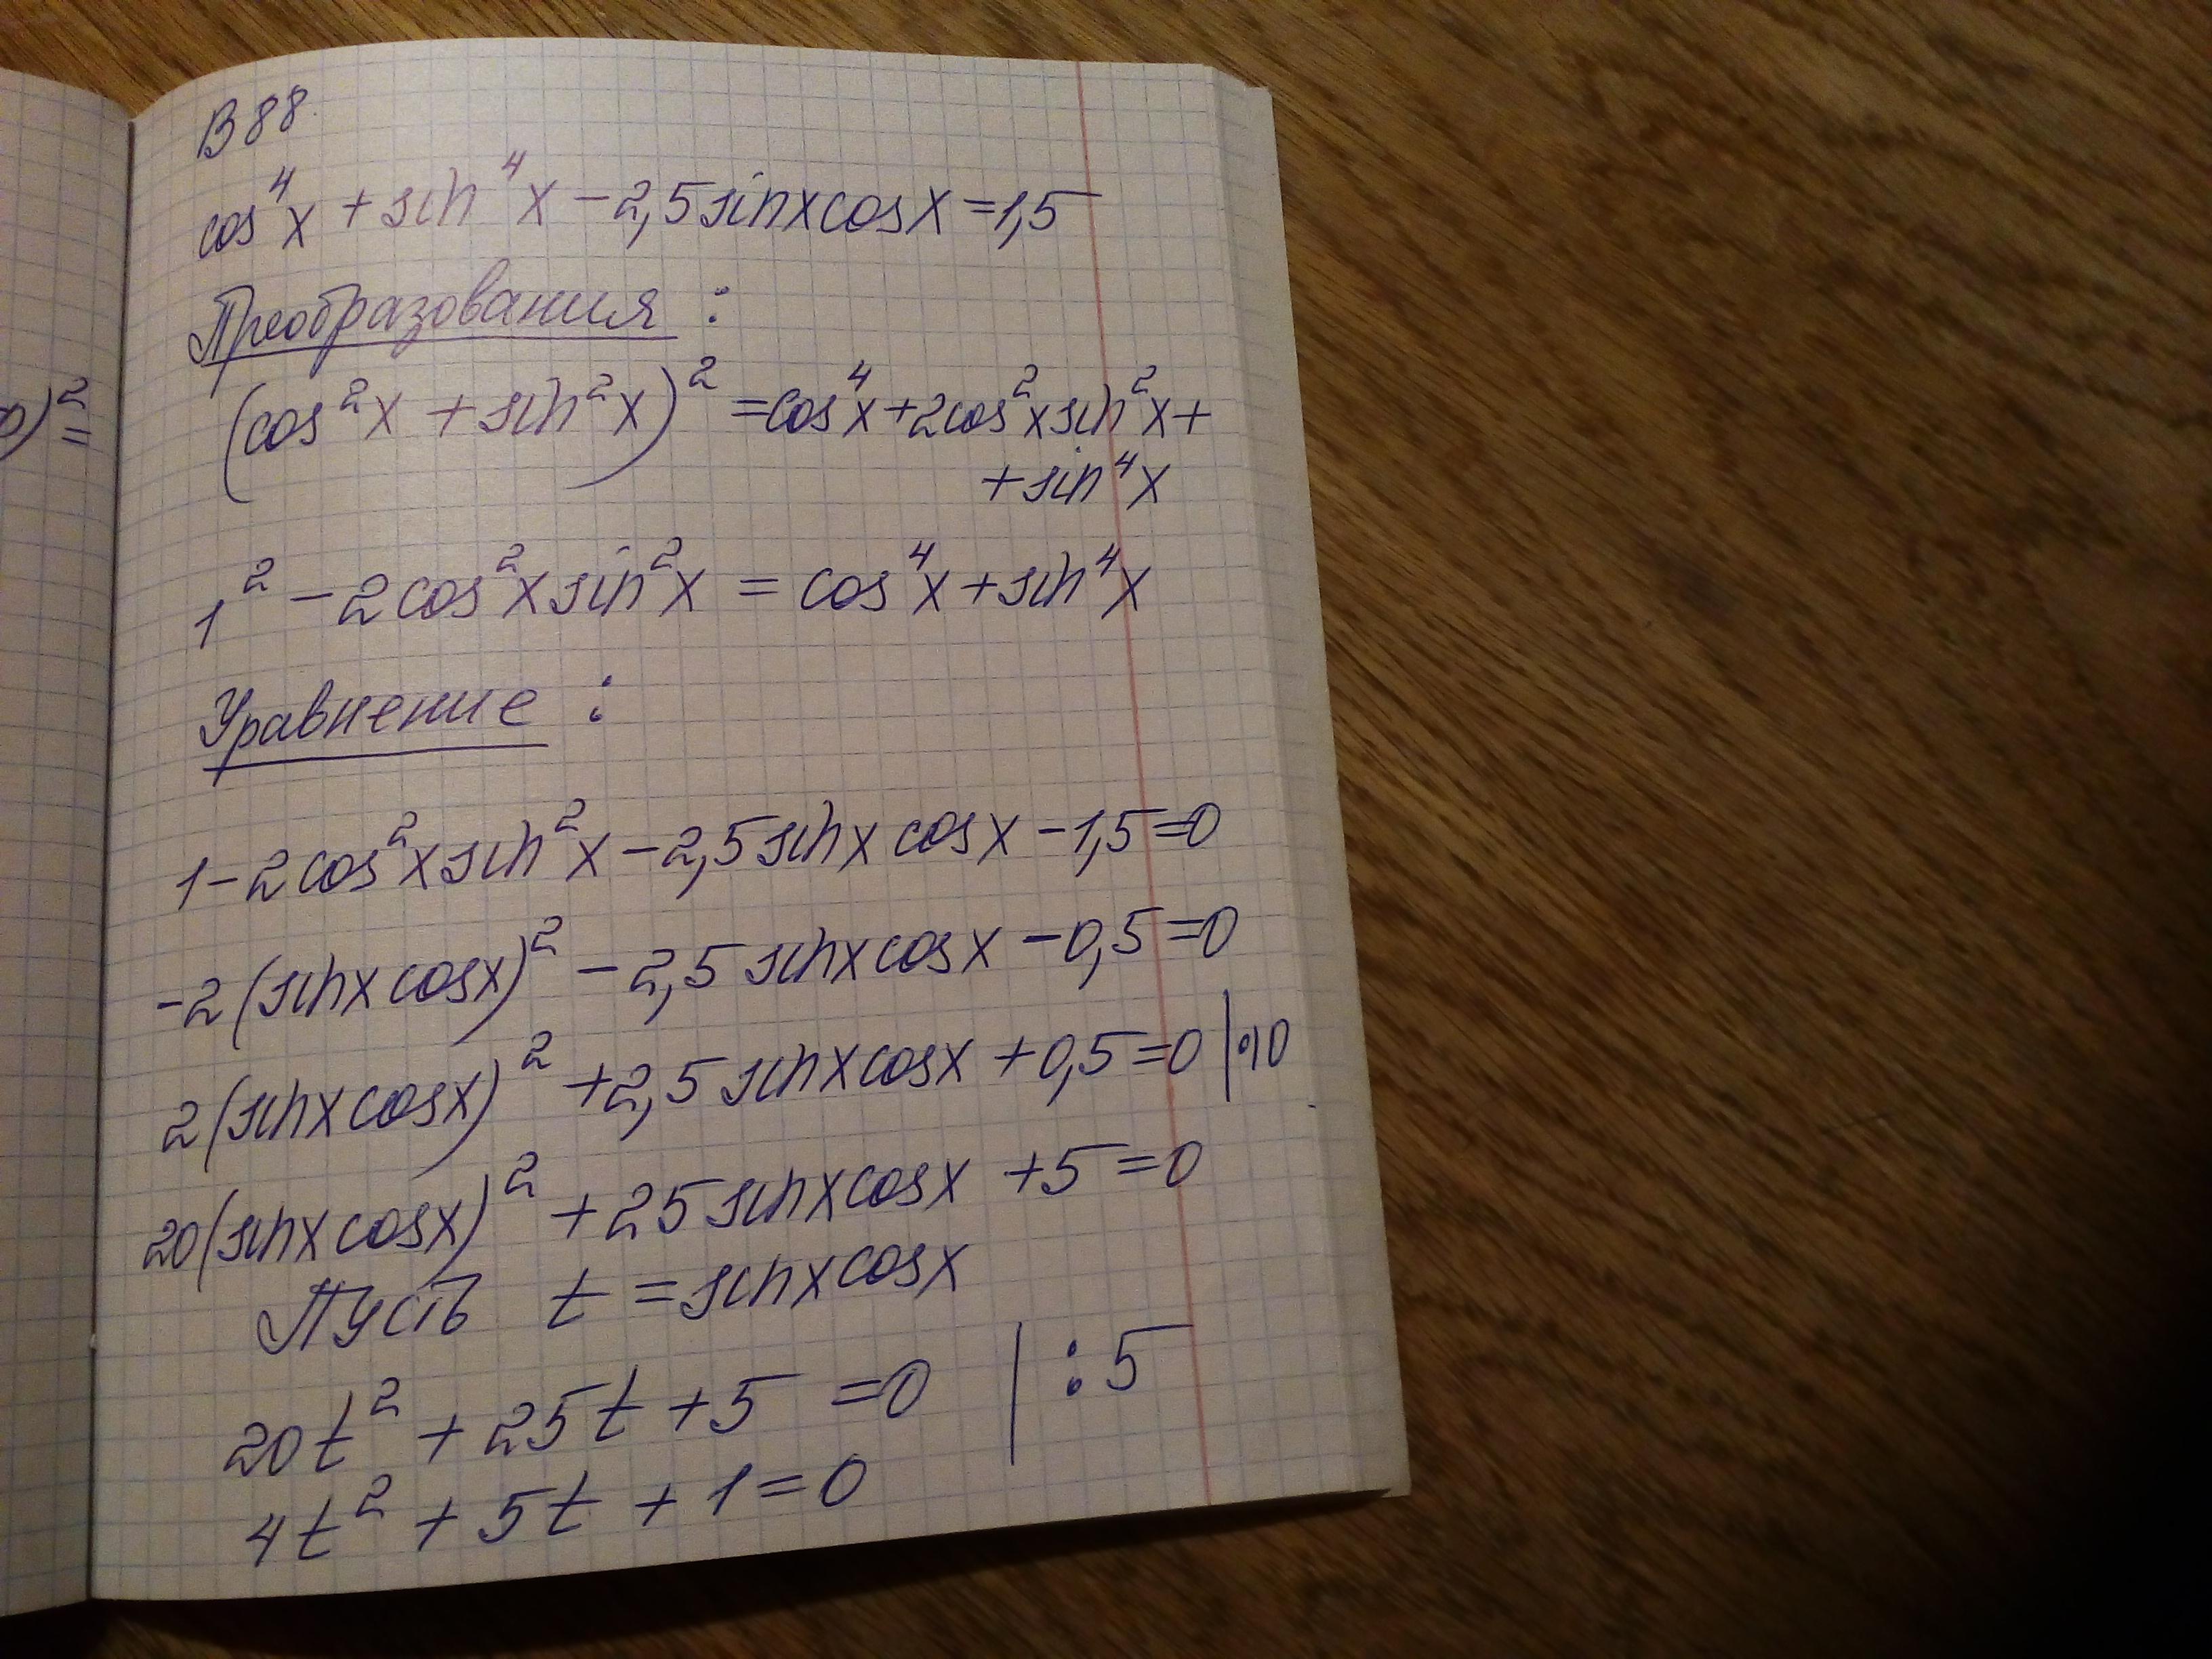 В 88.
cos⁴x + sin⁴x − 2,5 sinx cosx = 1,5
Преобразования :
(cos²x + sin²x)² = cos⁴x + 2cos²x sin²x +
+ sin⁴x
1² − 2cos²x sin²x = cos⁴x + sin⁴x
Уравнение :
1 − 2cos²x sin²x − 2,5 sinx cosx − 1,5 = 0
−2(sinx cosx)² − 2,5 sinx cosx − 0,5 = 0
2(sinx cosx)² + 2,5 sinx cosx + 0,5 = 0 |·10
20(sinx cosx)² + 25 sinx cosx + 5 = 0
Пусть t = sinx cosx
20t² + 25t + 5 = 0 | : 5
4t² + 5t + 1 = 0
)² =